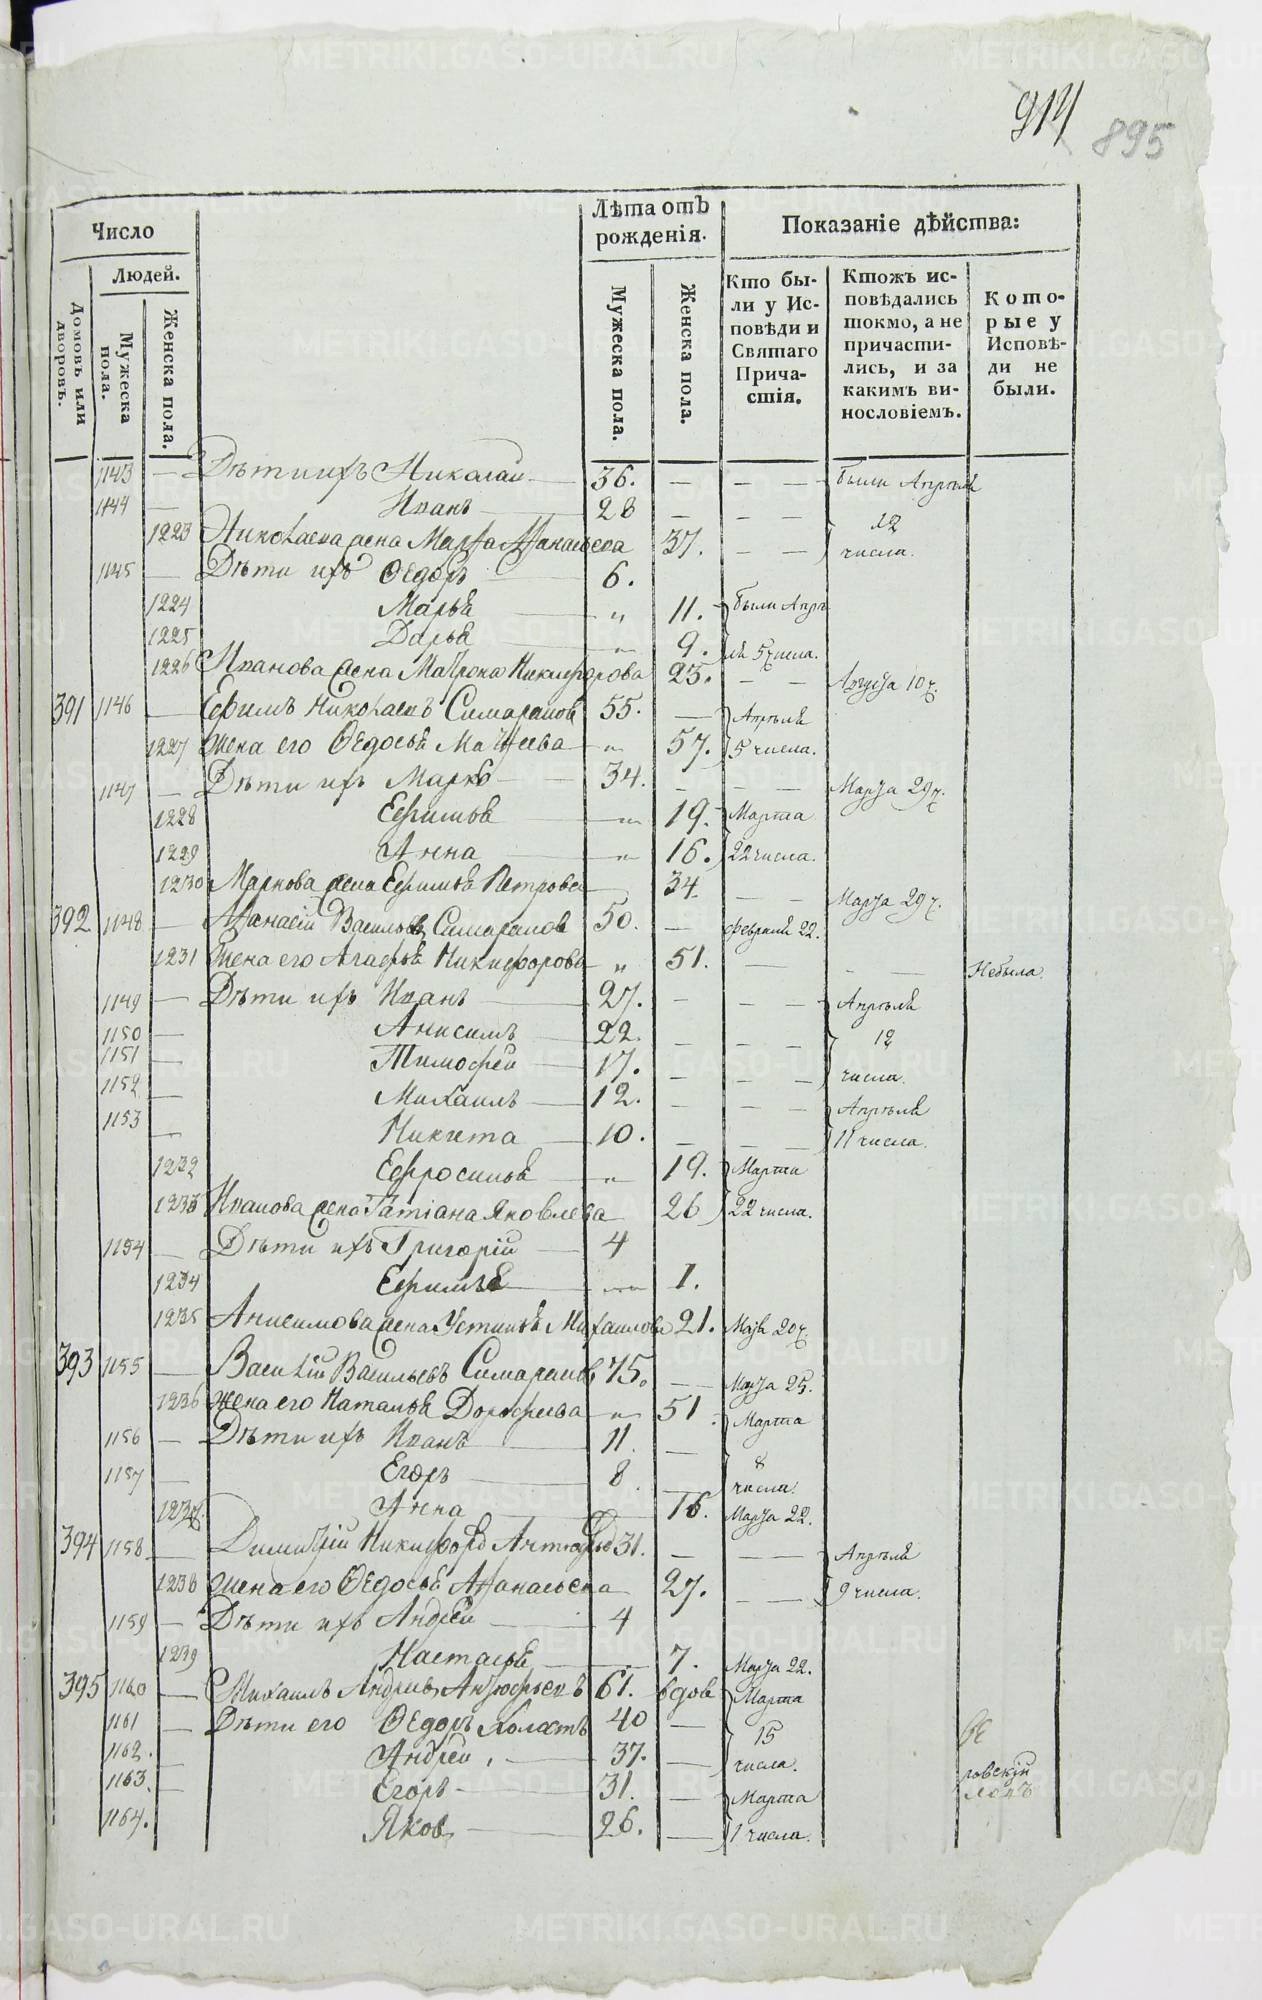 914 895
Число
Людей.
Домовъ или дворовъ.
Мужеска пола.
Женска пола.
Лѣта отъ рожденія.
Мужеска пола.
Женска пола.
Показаніе дѣйства:
Кто бы-
ли у Ис-
повѣди и
Святаго
Прича-
стія.
Ктожъ ис-
повѣдались
токмо, а не
причасти-
лись, и за
какимъ ви-
нословіемъ.
Кото-
рые у
Исповѣ-
ди не
были.
1143 — Дѣти ихъ Николай — 36. — — — были Апрѣля
1144 — Иванъ — 28 — — — 12
1223 Николаева жена Марѳа Аѳанасьева 37. — — числа.
1145 — Дѣти ихъ Ѳедоръ — 6.
1224 Марья — " 11. были Апрѣ
1225 Дарья — " 9. ля 5 числа.
1226 Иванова жена Матрона Никифорова 23. — — Августа 10 ч.
391 1146 — Ефимъ Николаевъ Симарановъ 55. — Апрѣля
1227 Жена его Ѳедосья Матѳеева — " 57. 5 числа.
1147 — Дѣти ихъ Марко — — 34. — — — Марта 29 ч.
1228 Ефимья — " 19. Марта
1229 Анна — " 16. 22 числа.
1230 Маркова жена Ефимья Петрова — 34. — — Марта 29 ч.
392 1148 — Аѳанасій Васильевъ Симарановъ 50. — Февраля 22.
1231 Жена его Агафья Никифорова — " 51. — — — Небыла.
1149 — Дѣти ихъ Иванъ — 27. — — — Апрѣля
1150 — Анисимъ — 22. — — — 12
1151 — Тимофей — 17. — — — числа.
1152 — Михаилъ — 12. — — — Апрѣля
1153 — Никита — 10. — — — 11 числа.
1232 Ефросинья — " 19. Марта
1233 Иванова жена Татіана Яковлева 26 22 числа.
1154 — Дѣти ихъ Григорій — 4
1234 Ефимья — " 1.
1235 Анисимова жена Устинья Михаилова 21. Маія 20 ч.
393 1155 — Василій Васильевъ Симарановъ 75. — Марта 25.
1236 Жена его Наталья Дорофеева — " 51. Марта
1156 — Дѣти ихъ Иванъ — 11. — 8
1157 — Егоръ — 8. — числа.
1237. Анна — 16. Марта 22.
394 1158 — Димитрій Никифоровъ 31. — — — Апрѣля
1238 Жена его Ѳедосья Аѳанасьева — 27. — — 9 числа.
1159 — Дѣти ихъ Андрей — 4
1239 Настасья — 7. Марта 22.
395 1160 — Михаилъ Андреевъ 61. вдовъ Марта
1161 — Дѣти его Ѳедоръ Холостъ 40 — 15
1162. — Андрей — 37. — числа.
1163. — Егоръ — 31. — Марта
1164. Яковъ — 26. — 1 числа.